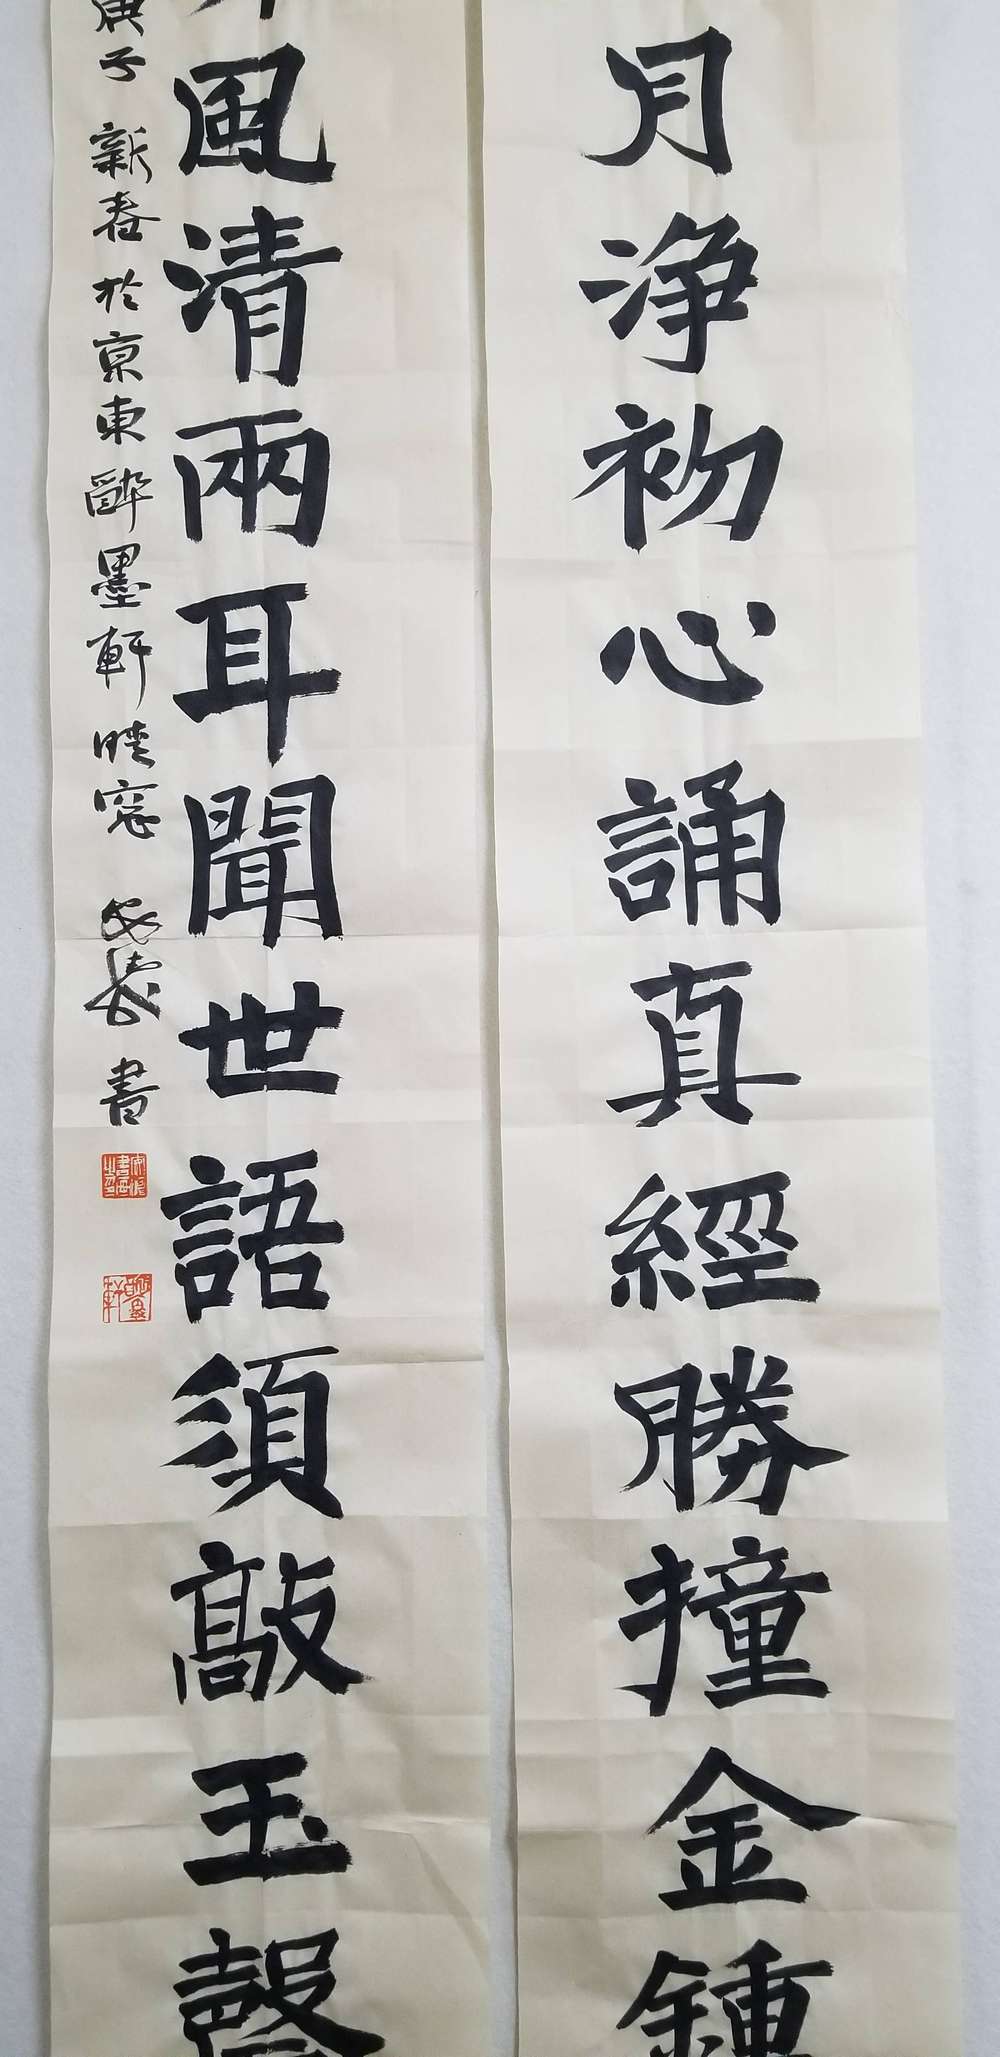 月净初心誦真經勝撞金鍾
風清兩耳聞世語須敲玉磬
庚子新春於京東醉墨軒曉窓
書